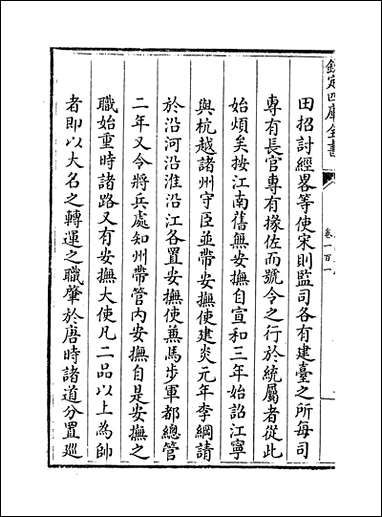 欽定四庫全書
卷一百
田招討經畧等使宋則監司各有建臺之所每司
專有長官專有掾佐而號令之行於統屬者從此
始煩矣按江南舊無安撫自宣和三年始詔江寧
與杭越諸州守臣並帶安撫使建炎元年李綱請
於沿河沿淮沿江各置安撫使兼馬步軍都總管
二年又令將兵處知州帶管内安撫自是安撫之
職始重時諸路又有安撫大使凡二品以上為帥
者即以大名之轉運之職肇於唐時諸道分置廵